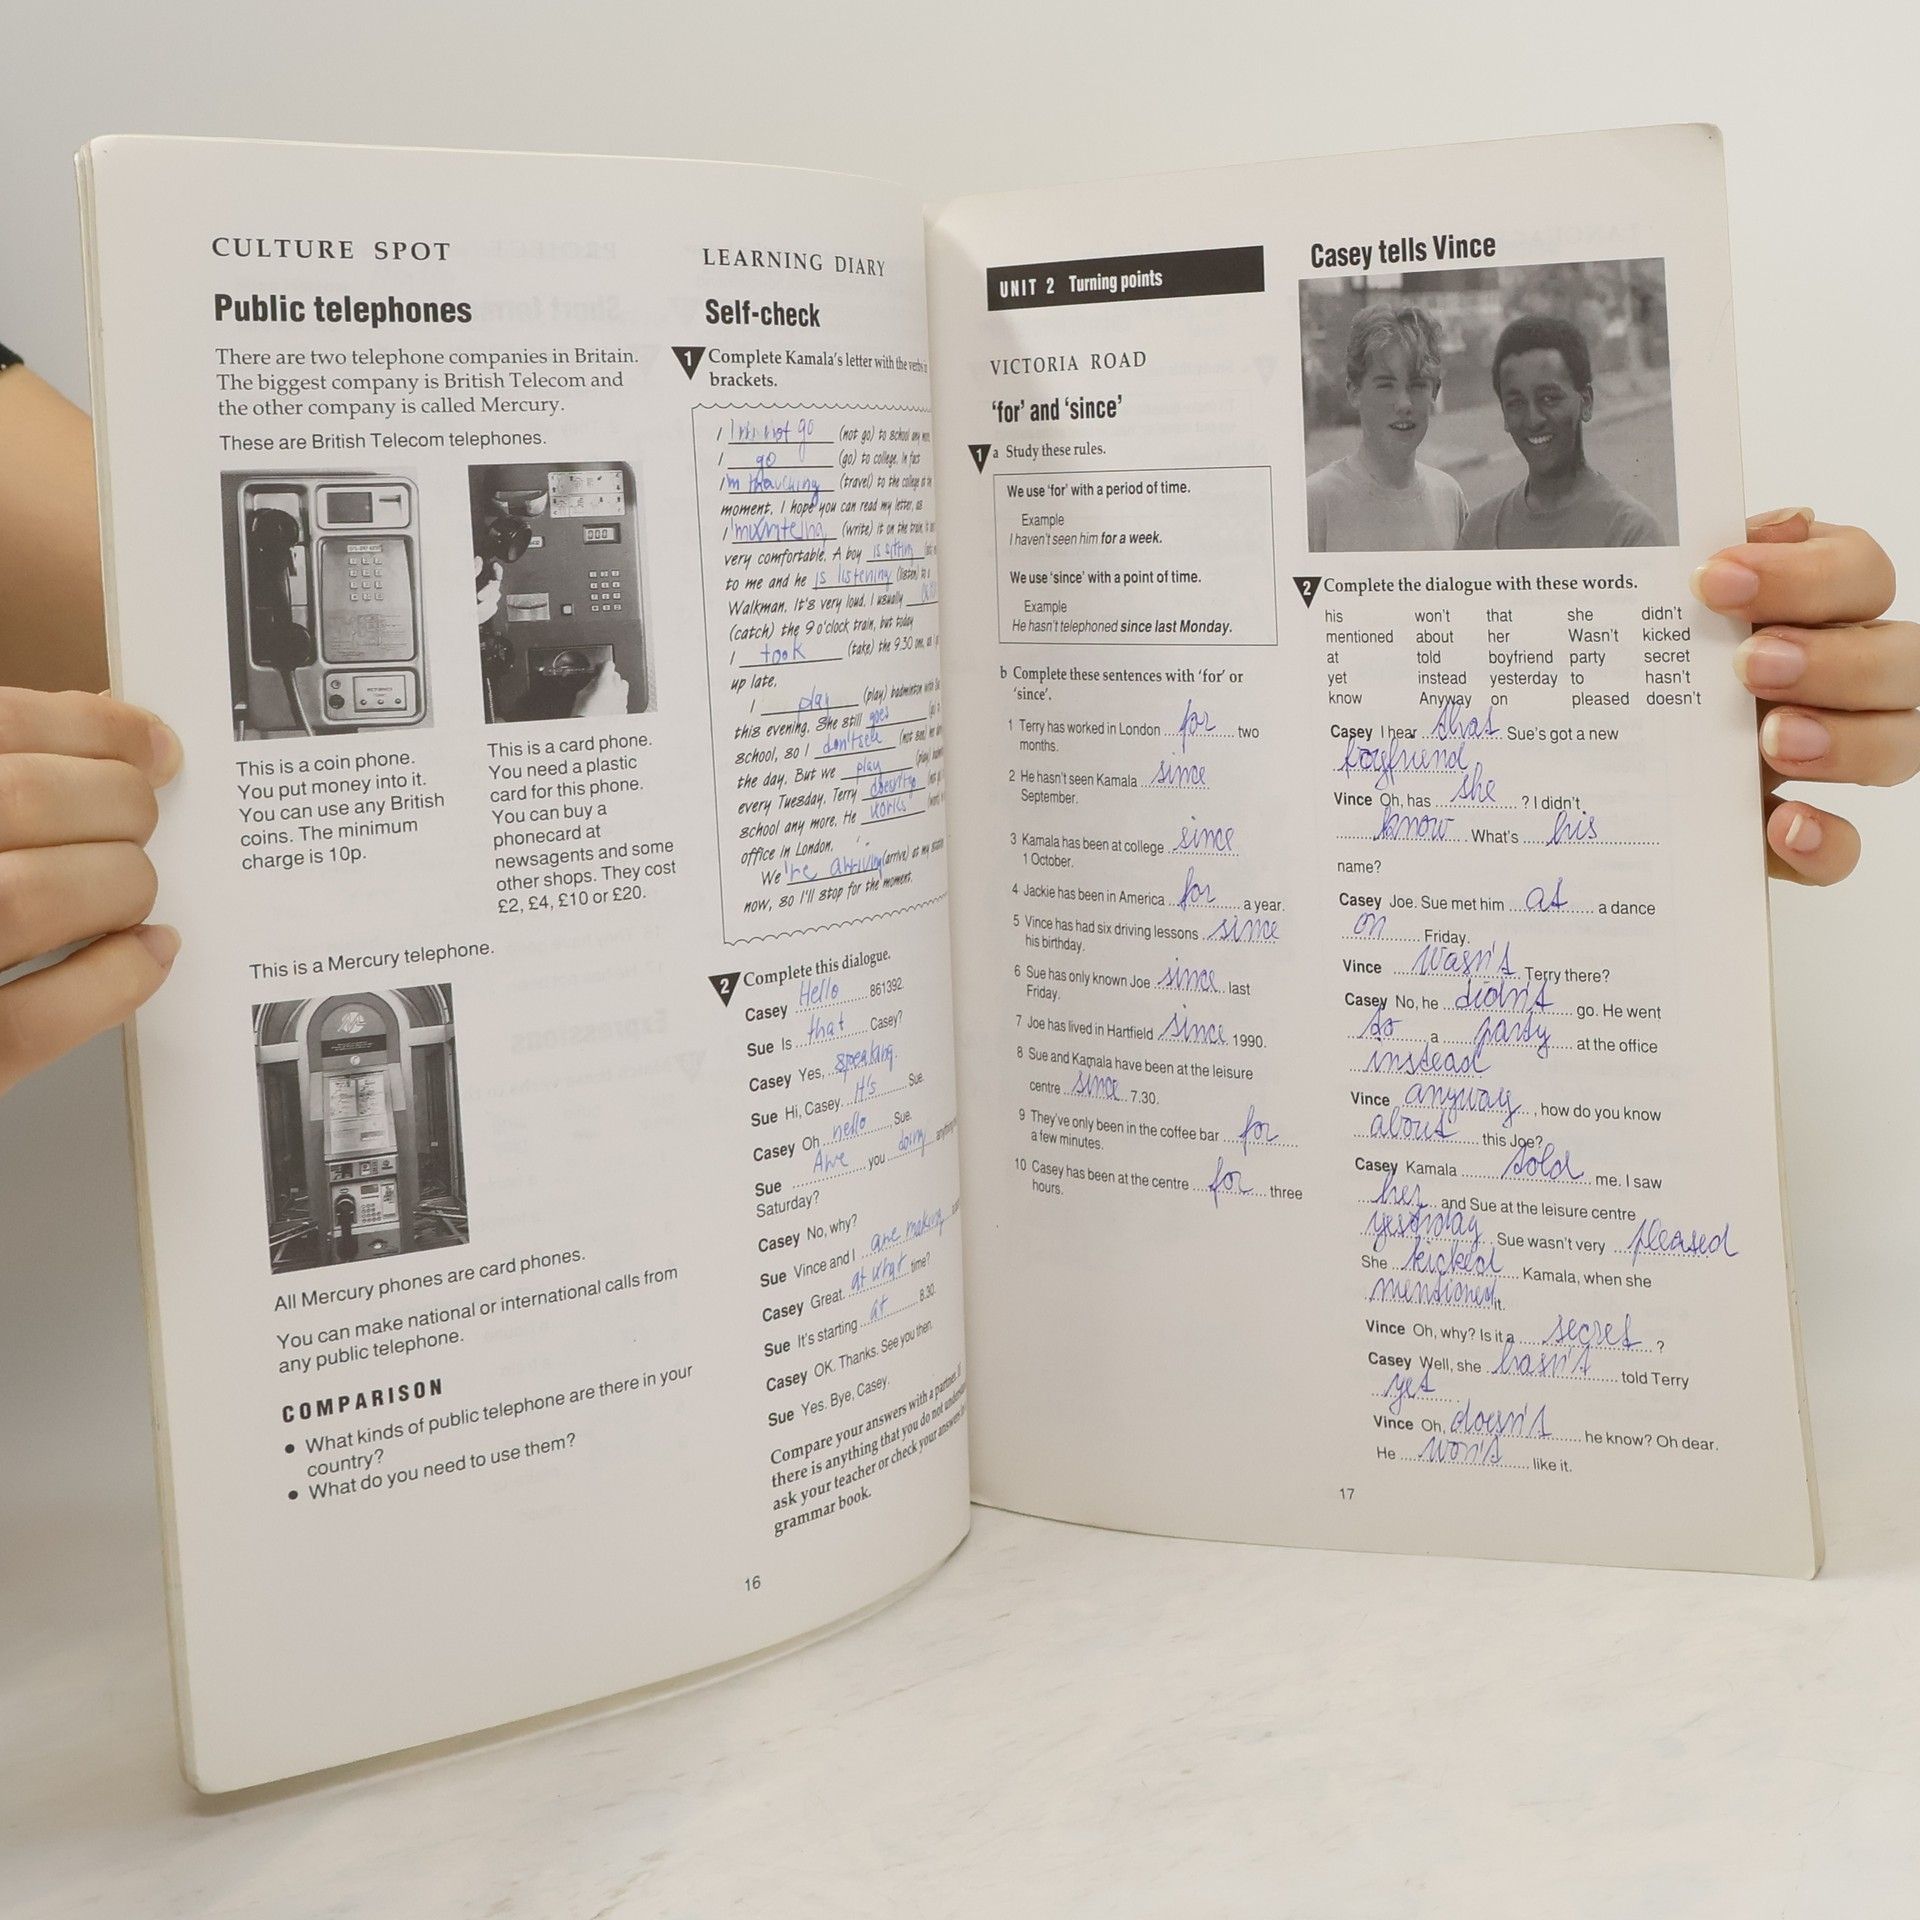 CULTURE SPOT
Public telephones
There are two telephone companies in Britain.
The biggest company is British Telecom and
the other company is called Mercury.
These are British Telecom telephones.
This is a coin phone.
You put money into it.
You can use any British
coins. The minimum
charge is 10p.
This is a card phone.
You need a plastic
card for this phone.
You can buy a
phonecard at
newsagents and some
other shops. They cost
£2, £4, £10 or £20.
This is a Mercury telephone.
All Mercury phones are card phones.
You can make national or international calls from
any public telephone.
COMPARISON
• What kinds of public telephone are there in your
country?
• What do you need to use them?
LEARNING DIARY
Self-check
1 Complete Kamala's letter with the verbs
brackets.
I not go (not go) to school any
I go (go) to college. In fact
I'm (travel) to the college at the
moment. I hope you can read my letter, as
I (write) it on the train.
very comfortable. A boy is sitting
to me and he is listening (listen) to a
Walkman. It's very loud. I usually
(catch) the 9 o'clock train, but today
I took (take) the 9.30
up late.
I play (play) badminton with
this evening. She still goes
school, so I don't see (not see)
the day. But we play (play)
every Tuesday. Terry doesn't go
school any more. He works
office in London.
We 're arriving (arrive) at my station
now, so I'll stop for the moment.
2 Complete this dialogue.
Casey Hello 861392.
Sue Is that Casey?
Casey Yes, speaking.
Sue Hi, Casey. It's Sue.
Casey Oh hello, Sue.
Sue Are you doing
Saturday?
Casey No, why?
Sue Vince and I are making
Casey Great. at what time?
Sue It's starting at 8.30.
Casey OK. Thanks. See you then.
Sue Yes. Bye, Casey.
Compare your answers with a partner. If
there is anything that you do not understand
ask your teacher or check your answers
grammar book.
16
UNIT 2 Turning points
VICTORIA ROAD
'for' and 'since'
1 a Study these rules.
We use 'for' with a period of time.
Example
I haven't seen him for a week.
We use 'since' with a point of time.
Example
He hasn't telephoned since last Monday.
b Complete these sentences with 'for' or
'since'.
1 Terry has worked in London for two
months.
2 He hasn't seen Kamala since
September.
3 Kamala has been at college since
1 October.
4 Jackie has been in America for a year.
5 Vince has had six driving lessons since
his birthday.
6 Sue has only known Joe since last
Friday.
7 Joe has lived in Hartfield since 1990.
8 Sue and Kamala have been at the leisure
centre since 7.30.
9 They've only been in the coffee bar for
a few minutes.
10 Casey has been at the centre for three
hours.
Casey tells Vince
2 Complete the dialogue with these words.
his won't that she didn't
mentioned about her Wasn't kicked
at told boyfriend party secret
yet instead yesterday to hasn't
know Anyway on pleased doesn't
Casey I hear that Sue's got a new
boyfriend
Vince Oh, has she ? I didn't
know. What's his
name?
Casey Joe. Sue met him at a dance
on Friday.
Vince Wasn't Terry there?
Casey No, he didn't go. He went
to a party at the office
instead
Vince anyway, how do you know
about this Joe?
Casey Kamala told me. I saw
her and Sue at the leisure centre
yesterday. Sue wasn't very pleased
She kicked Kamala, when she
mentioned it.
Vince Oh, why? Is it a secret ?
Casey Well, she hasn't told Terry
yet
Vince Oh, doesn't he know? Oh dear.
He won't like it.
17